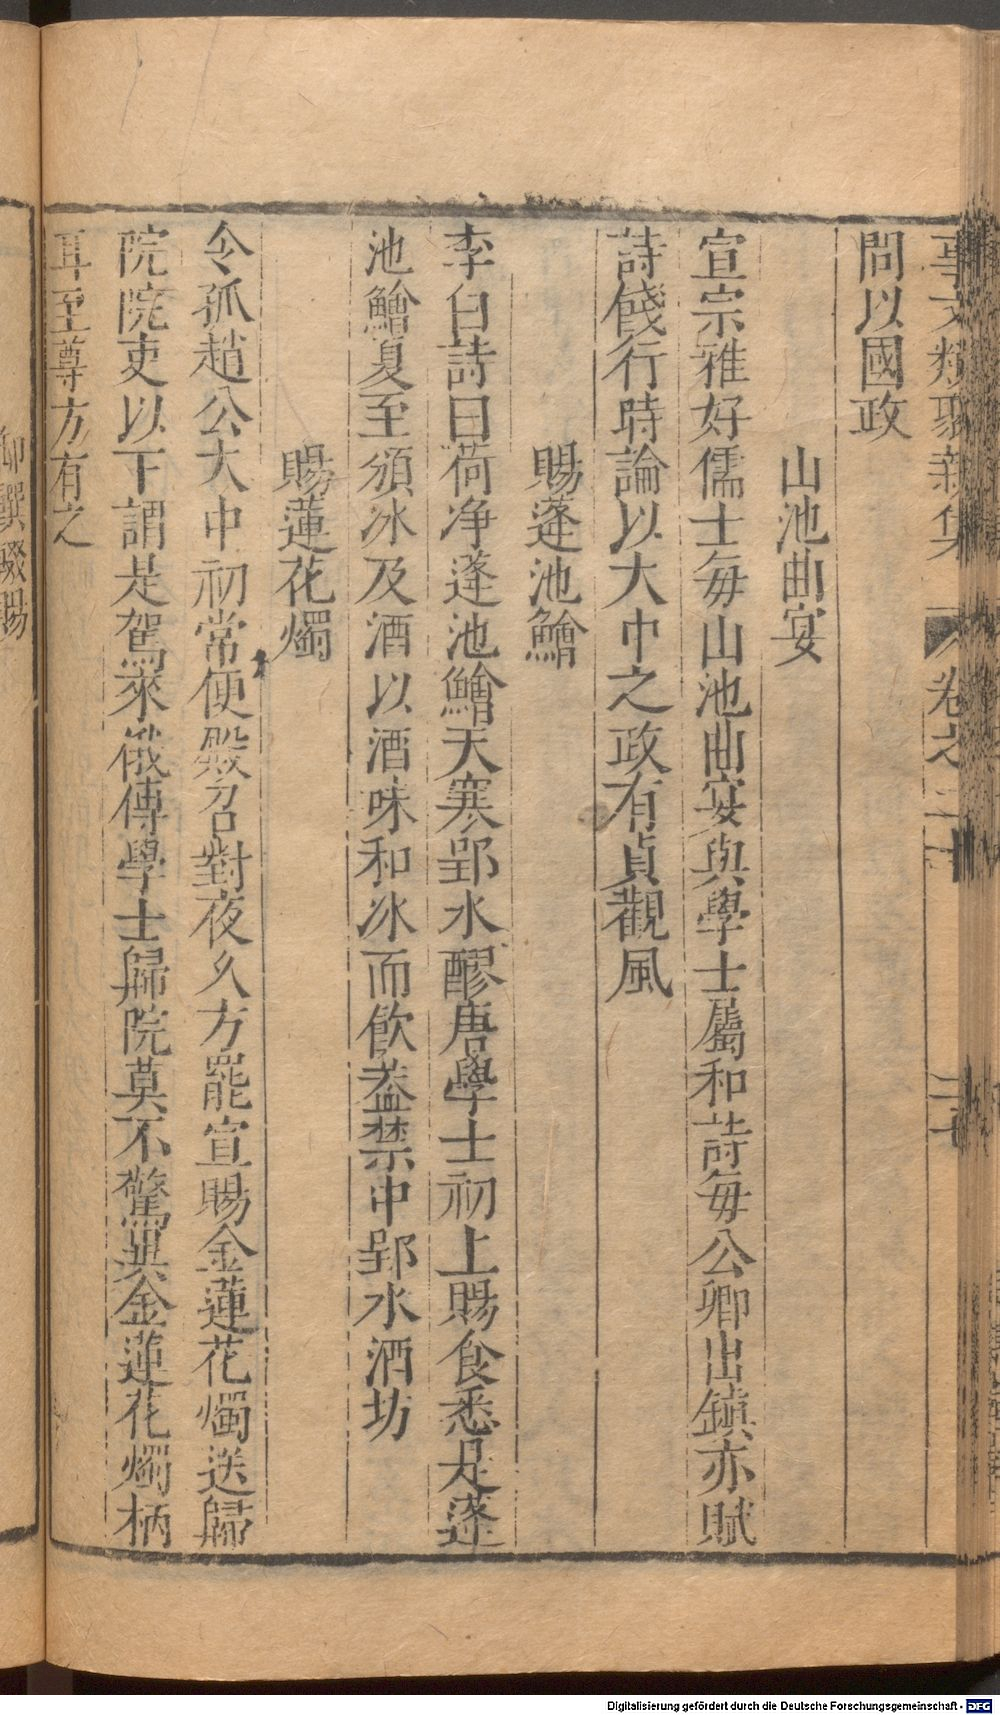 事文類聚新集 卷之二十 二七
問以國政
山池曲宴
宣宗雅好儒士每山池曲宴與學士屬和詩每公卿出鎮亦賦
詩餞行時論以大中之政有貞觀風
賜蓬池鱠
李白詩曰荷净蓬池鱠天寒郢水醪唐學士初上賜食悉是蓬
池鱠夏至頒冰及酒以酒味和冰而飲盖禁中郢水酒坊
賜蓮花燭
令孤趙公大中初常便殿召對夜久方罷宣賜金蓮花燭送歸
院院吏以下謂是駕來俄傳學士歸院莫不驚異金蓮花燭柄
耳至尊方有之
御饌輟賜
Digitalisierung gefördert durch die Deutsche Forschungsgemeinschaft - DFG